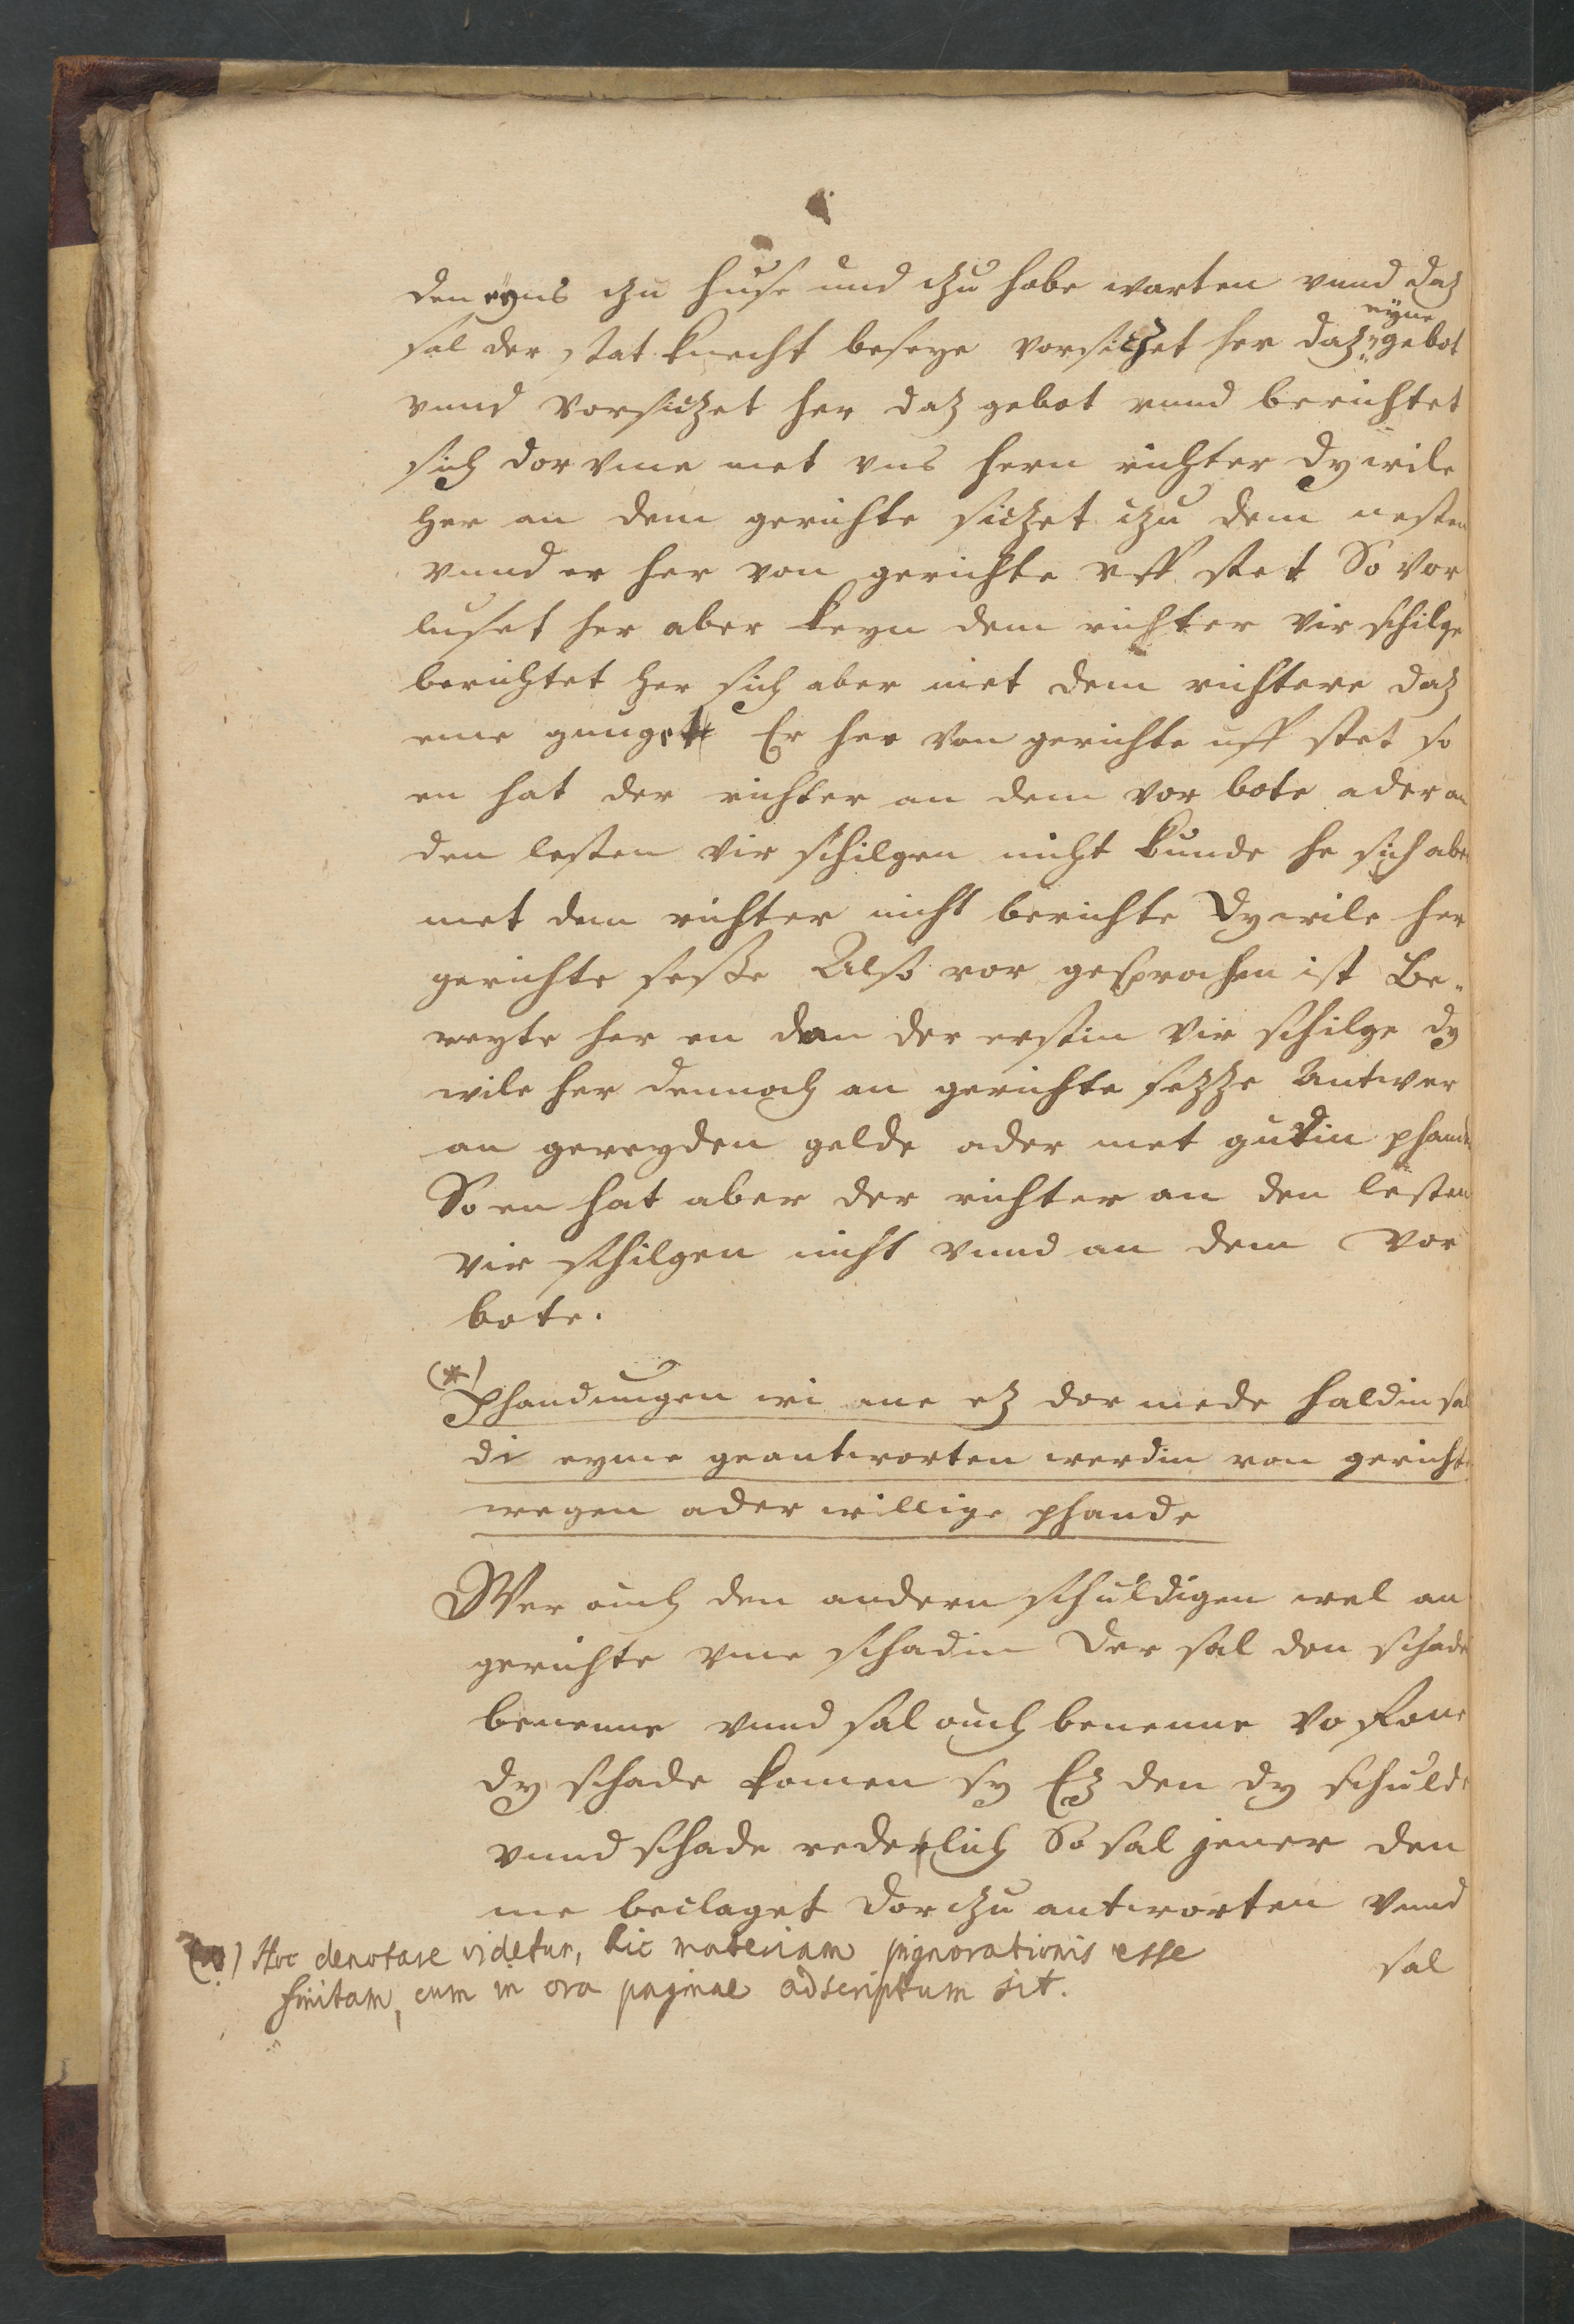 den eyns czu huse und czu habe warten vnnd daz
eyne
sal der stat knecht besehe vorsiczet her daz gebot
vnnd vorsiczet her daz gebot vnnd berichtet
sich dor vme met vns hern richter dy wile
her an dem gerichte siczet czu dem nesten
vnnd er her von gerichte vff stet So vor
luset her aber keyn dem richter vir schilge
berichtet her sich aber met dem richtere daz
eme gnuget Er her von gerichte uff stet so
en hat der richter an dem vor bote ader an
den lesten vir schilgen nicht kunde he sich aber
met dem richter nicht berichte dy wile her
gerichte sesße Also vor gesprochen ist Be„
reyte her en dan der erstin vir schilge dy
wile her dennoch an gerichte sezze Antwer
an gereyden gelde ader met gutin phande
So en hat aber der richter an den lesten
vir schilgen nicht vnnd an dem vor
bote.
(*)
Phandungen wi me ez dor mede haldin sal
di eyme geantworten werdin von gerichts
wegen ader willige phande
Wer ouch den andern schuldigen wel an
gerichte vme schadin der sal den schade
benenne vnnd sal ouch benenne vo
dy schade komen sy Ez den dy schuld
vnnd schade rederlich So sal jener den
me beclaget dor czu antworten vnnd
sal
(*) Hoc denotare videtur, hic materiam pignorationis esse
finitam, cum in ora paginae adscriptum sit.